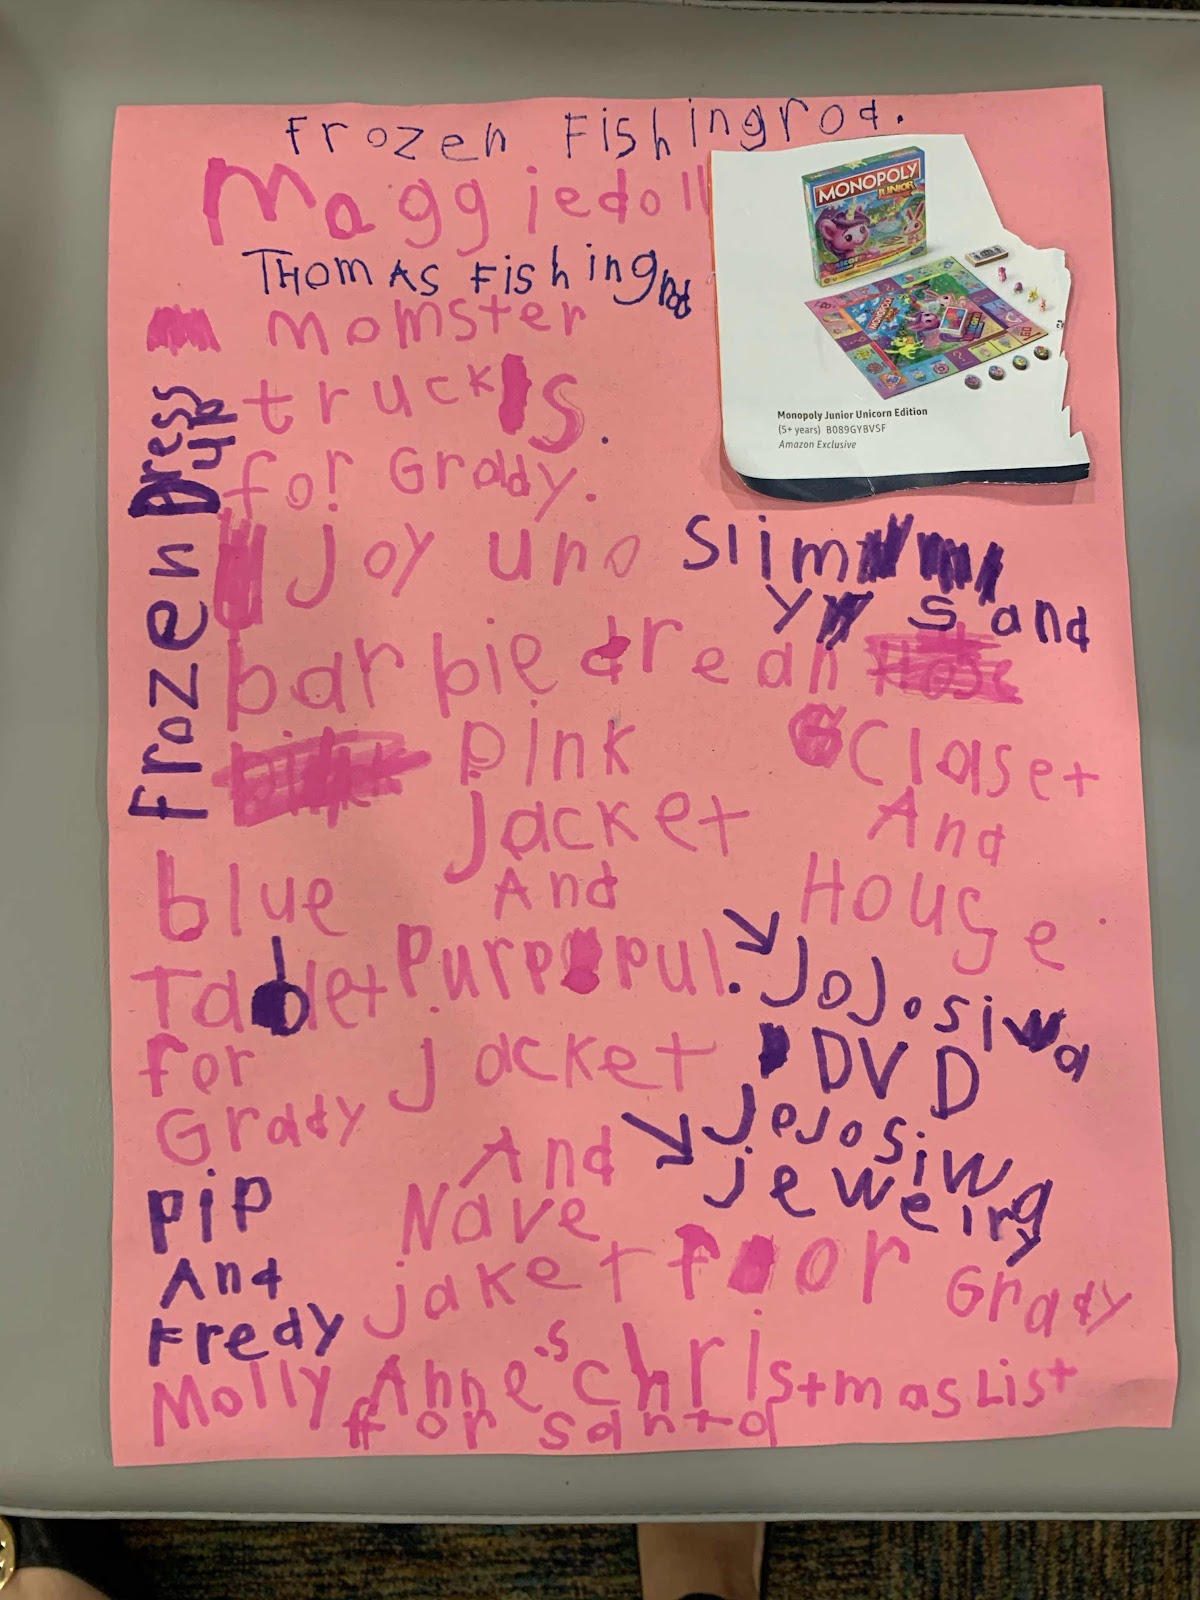 Frozen Fishingrod.
Maggiedoll
THOMAS Fishingrod
momster
trucks.
for Grady.
Frozen Dress
up
MONOPOLY
JUNIOR
Monopoly Junior Unicorn Edition
(5+ years) B089GYBVSF
Amazon Exclusive
Joy uno
Slim
y sand
barbie drean
Claset
And
House
pink
Jacket
And
Purpul.
Jacket
And
Nave
jaket for Grady
blue
Tablet
for
Grady
JoJosiwa
DVD
JoJosiwa
jewelry
pip
And
Fredy
Molly Anne's christmas List
for santa